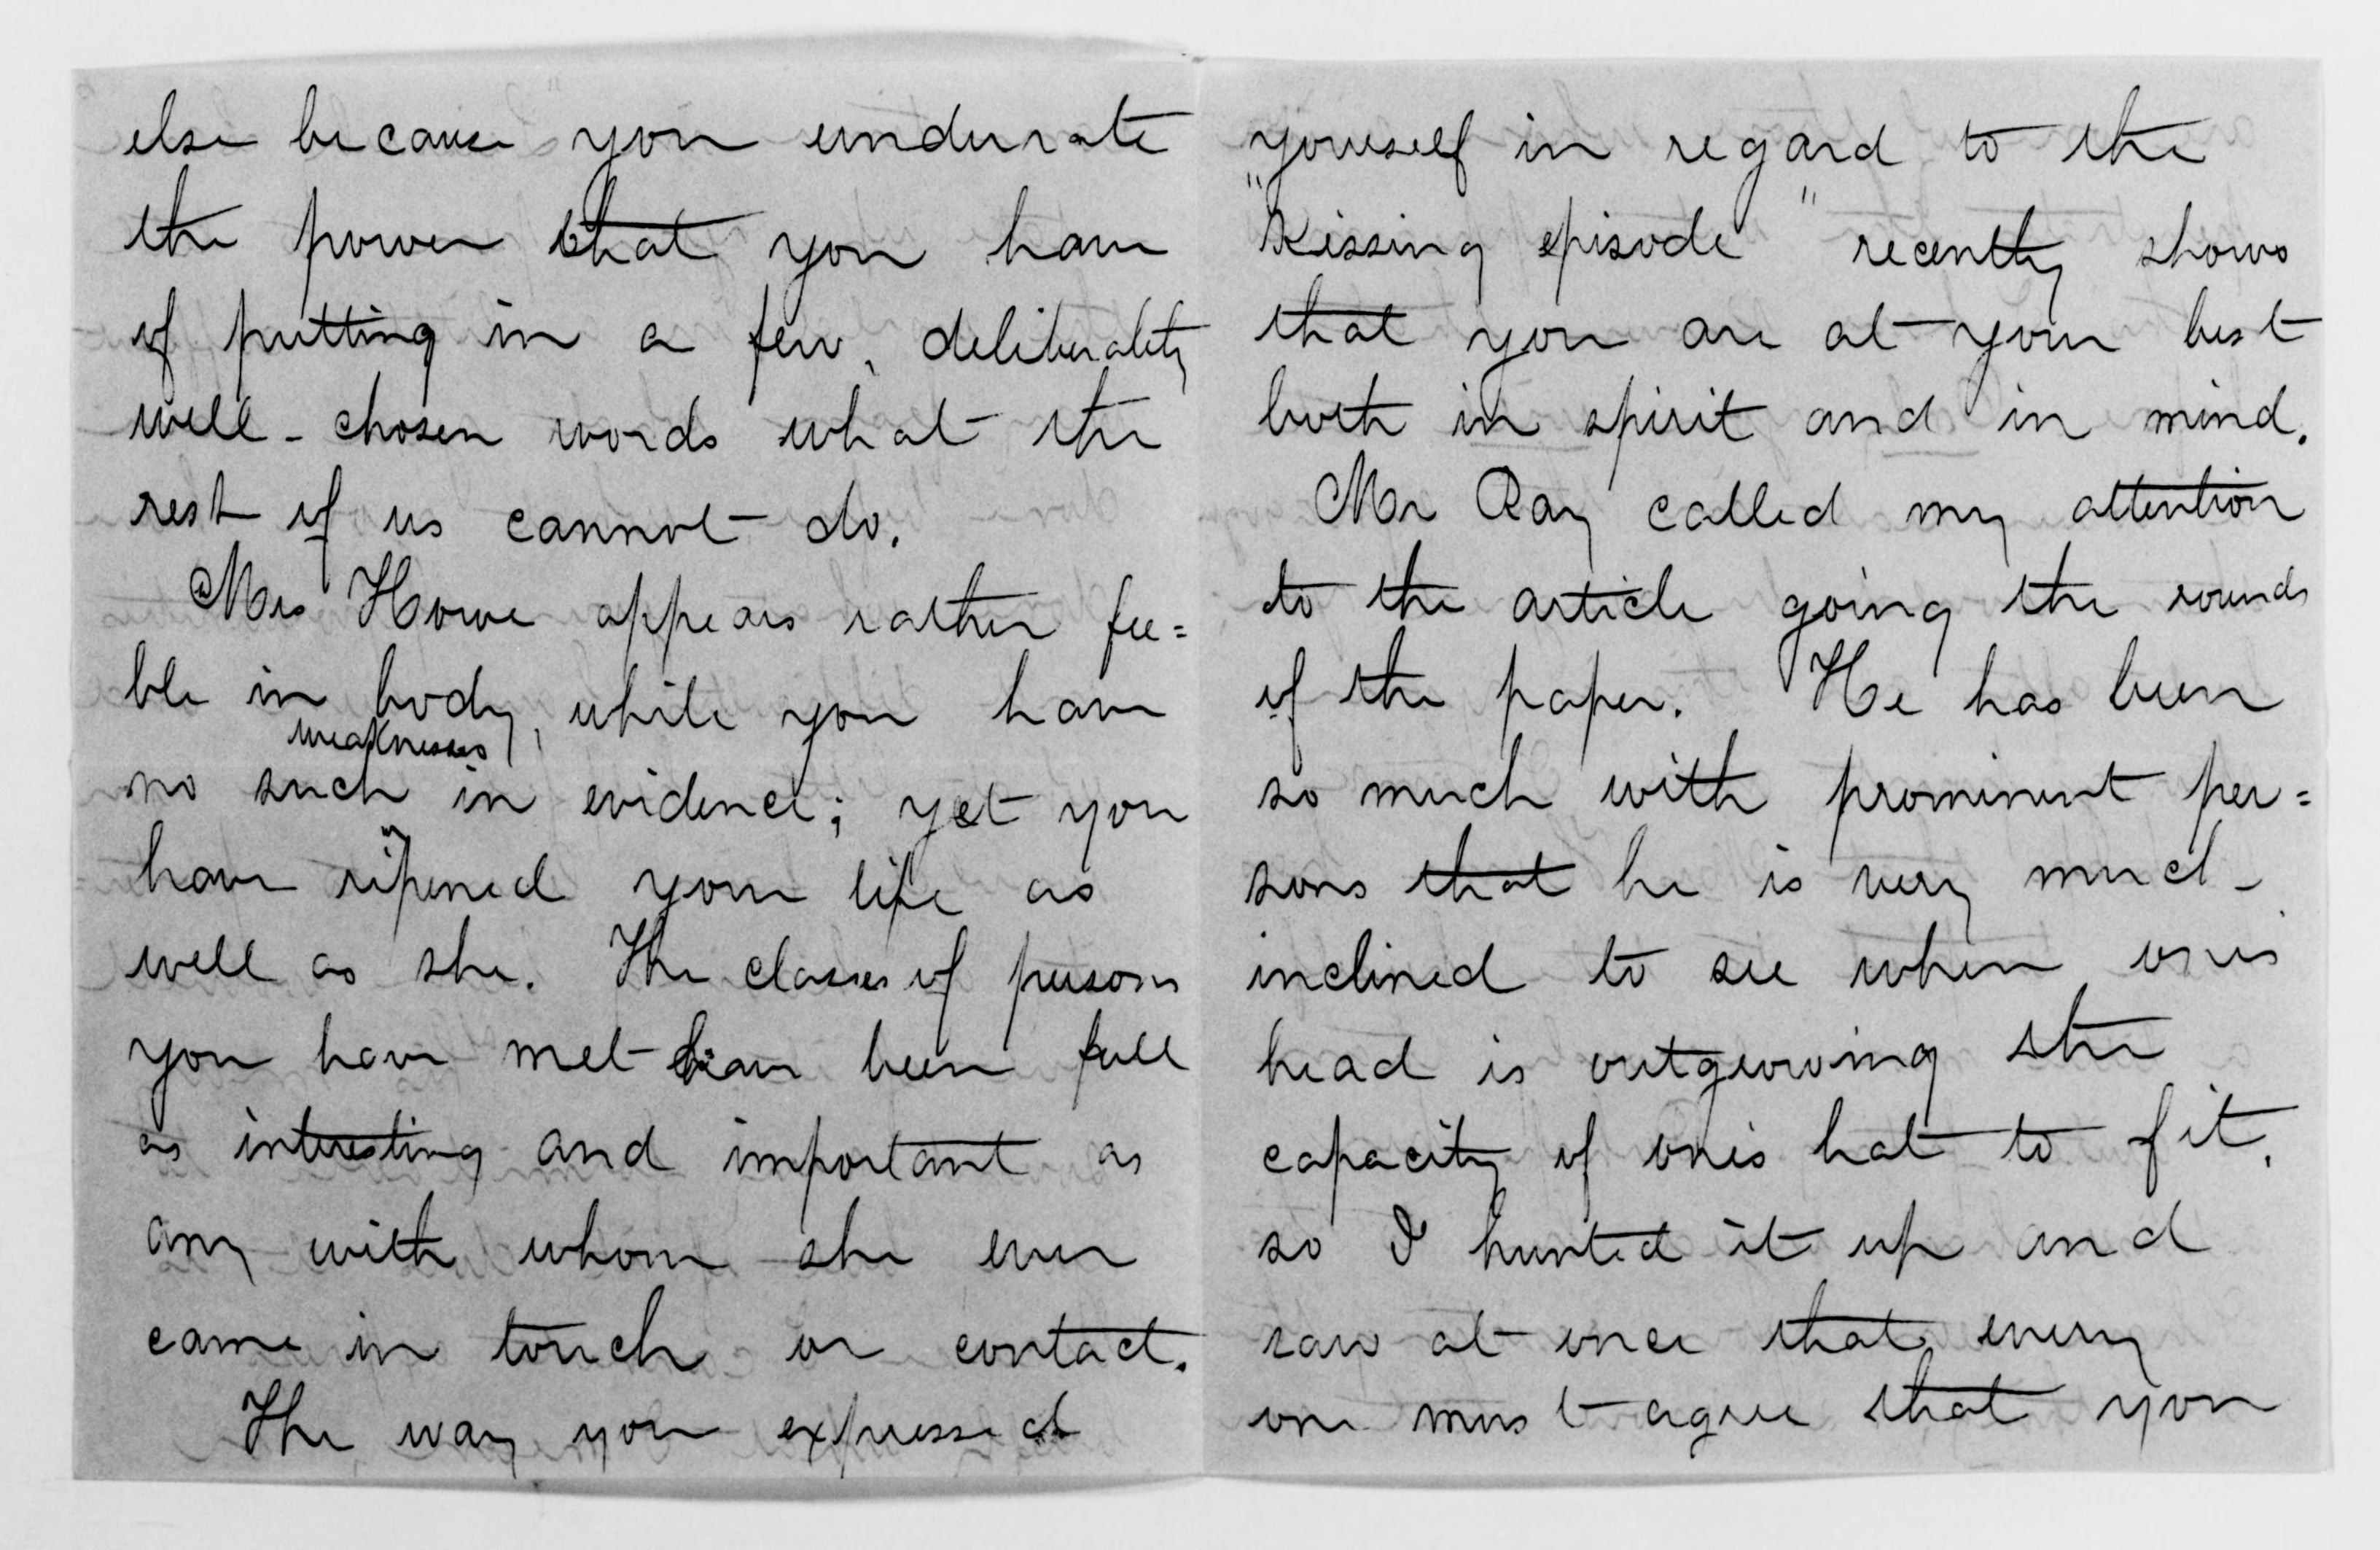 else because you underrate
the power that you have
of putting in a few, deliberately
well-chosen words what the
rest of us cannot do.
Mrs Howe appears rather fee=
ble in body, while you have
weaknesses
no such in evidence; yet you
have ripened your life as
well as she. The classes of persons
you have met have been full
as interesting and important as
any with whom she ever
came in touch or contact.
The way you expressed
yourself in regard to the
"Kissing episode" recently shows
that you are at your best
both in spirit and in mind.
Mr Ray called my attention
to the article going the rounds
of the paper. He has been
so much with prominent per=
sons that he is very much
inclined to see when ones
head is outgrowing the
capacity of one's hat to fit,
so I hunted it up and
saw at once that every
one must agree that you